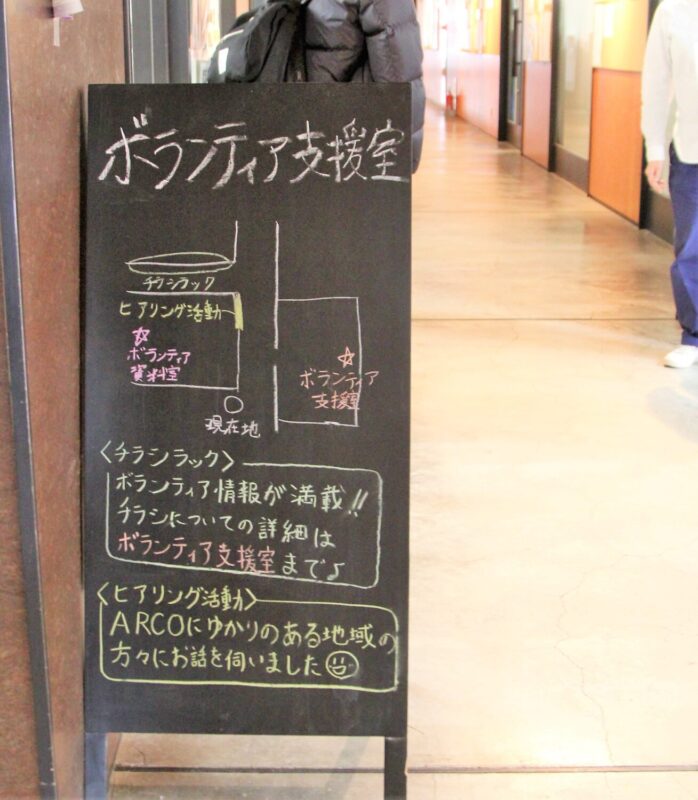 ボランティア支援室
チラシラック
ヒアリング活動
☆
ボランティア
資料室
☆
ボランティア
支援室
現在地
〈チラシラック〉
ボランティア情報が満載!!
チラシについての詳細は
ボランティア支援室まで♪
〈ヒアリング活動〉
ARCOにゆかりのある地域の
方々にお話を伺いました